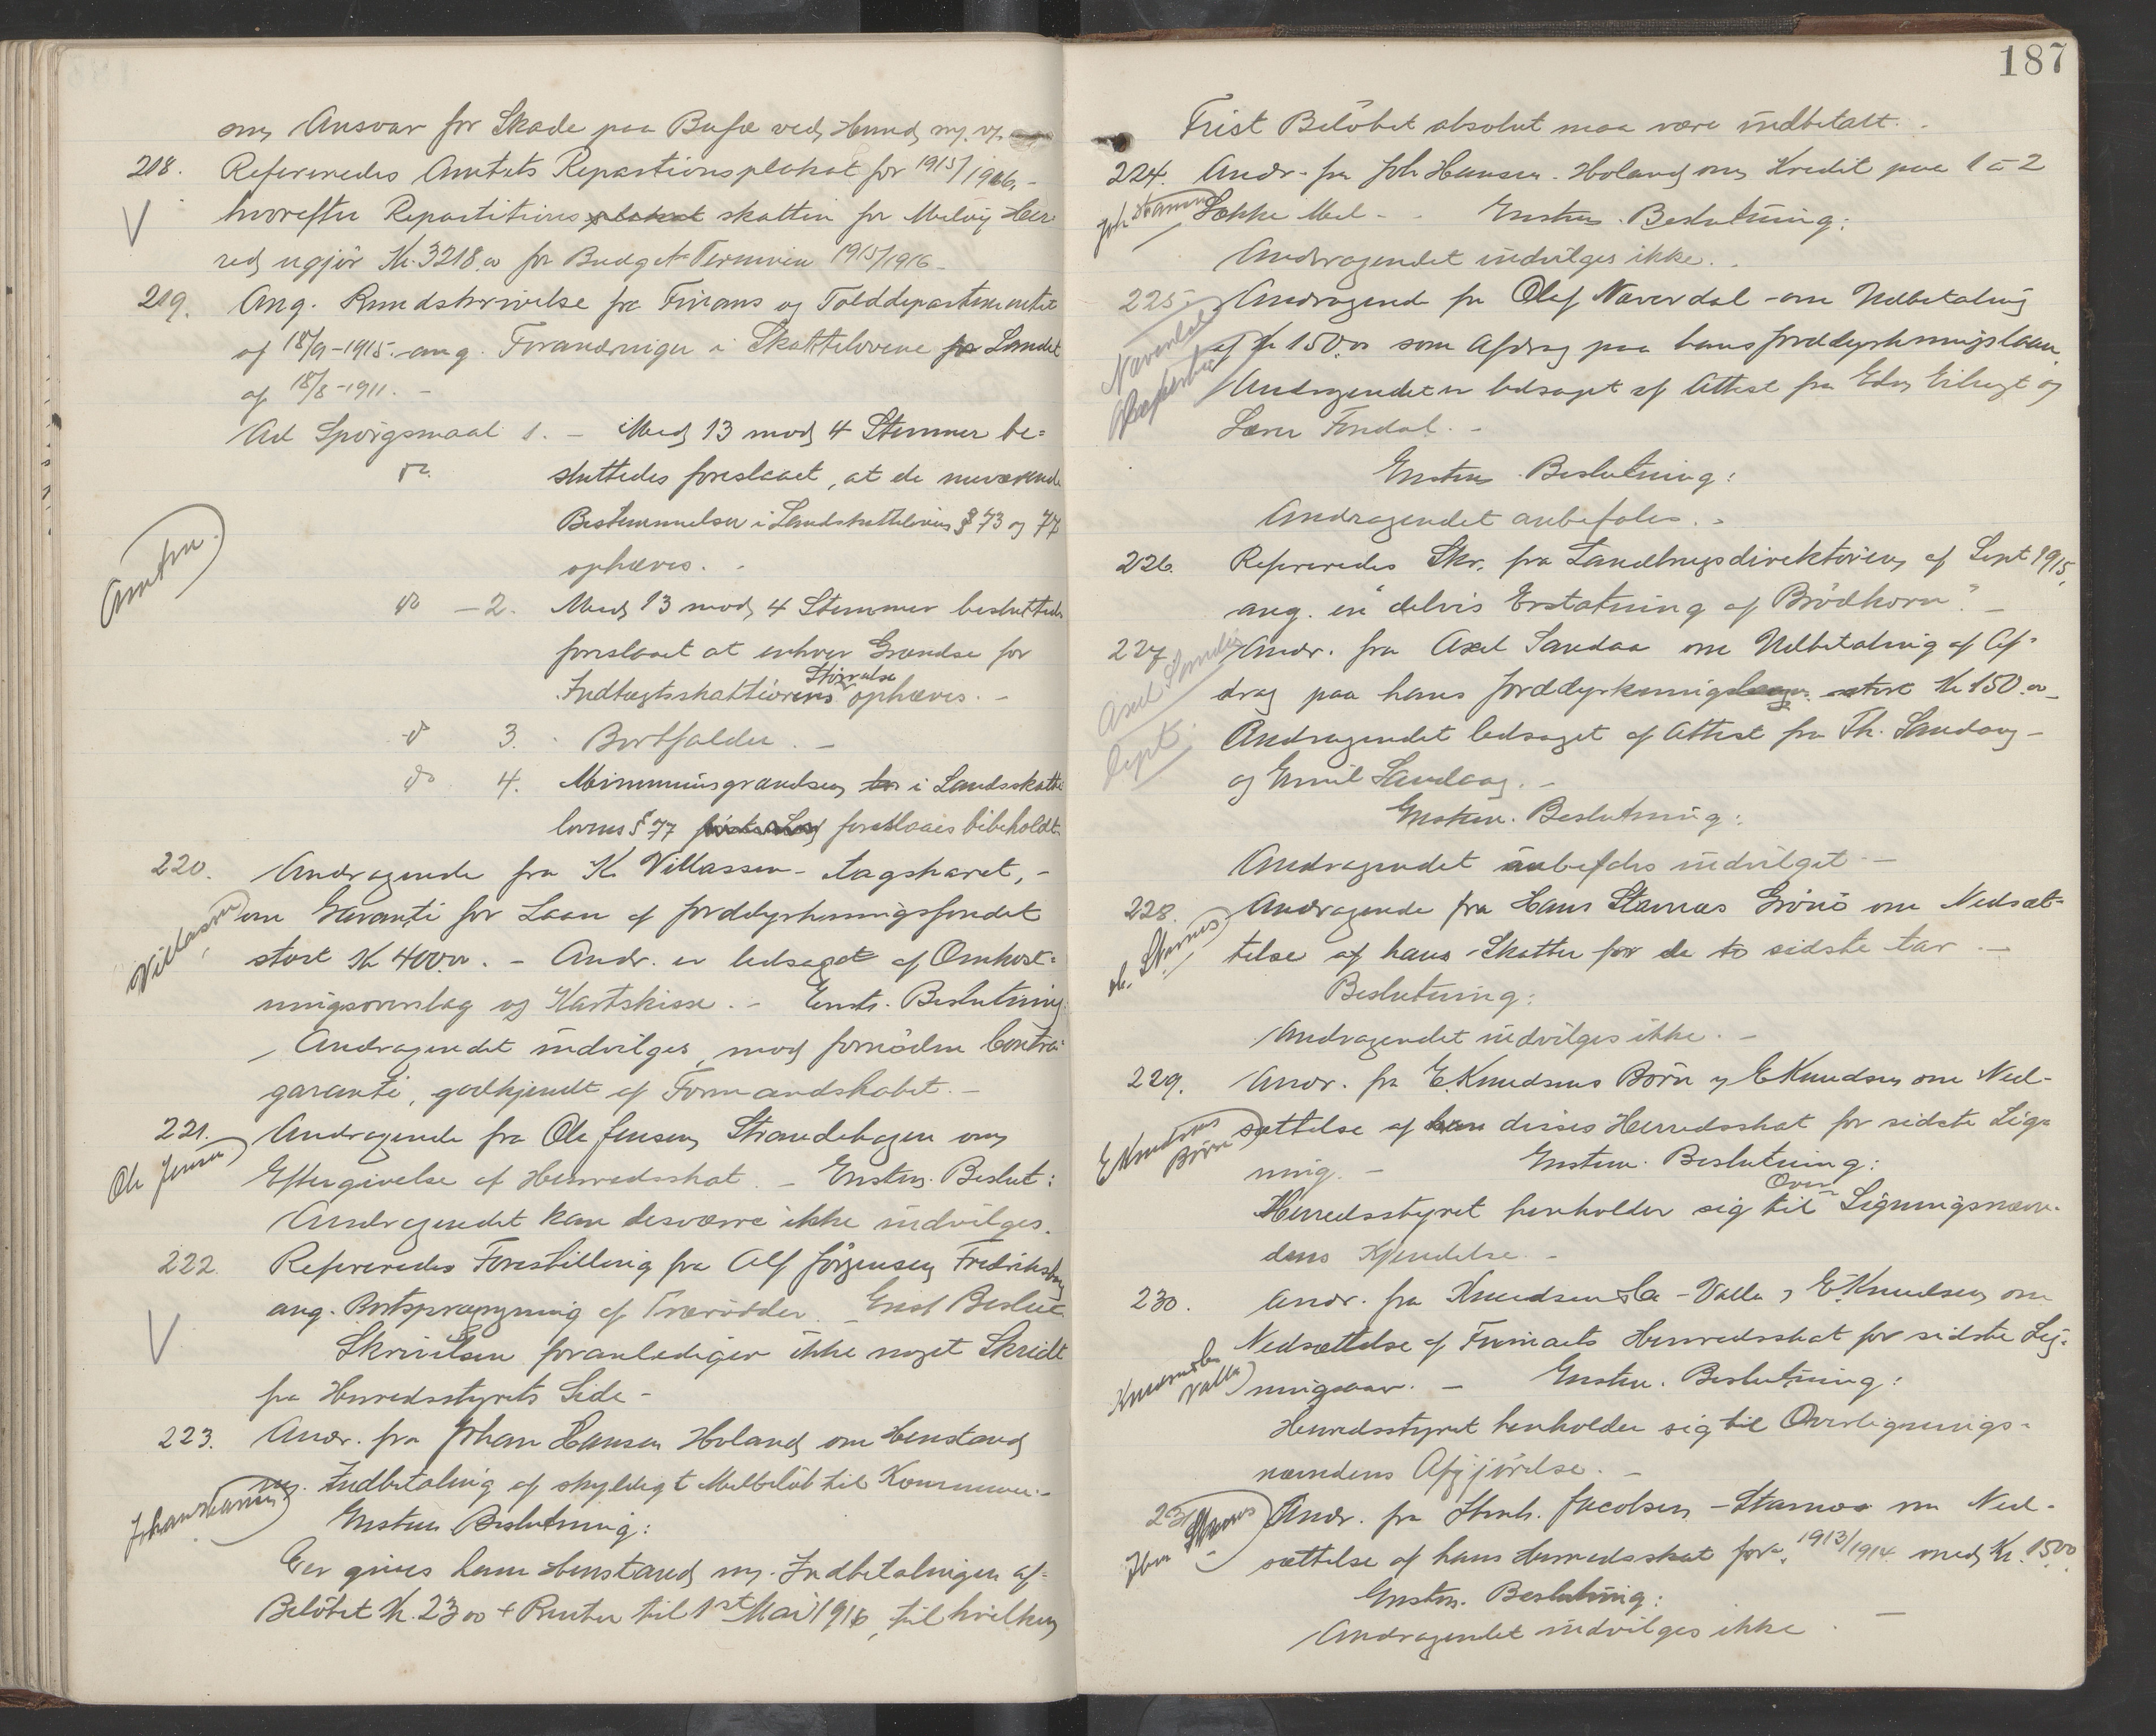 om Ansvar for Skade paa Bufæ ved Hund m. v.
218. Refereredes Amtets Repartionsplakat for 1915/1916, -
hvorefter Repartitions plakat skatten for Meløy Her-
red ugjør Kr. 3218.00 for Budget Terminen 1915/1916 -
219. Ang. Rundskrivelse fra Finans og Tolddepartementet
af 18/9-1915. ang. Forandringer i Skattelovene for Landet
af 18/8-1911. -
Ad Spørgsmaal 1. - Med 13 mod 4 Stemmer be-
do. sluttedes foreslaaet, at de nuværende
Bestemmelser i Landsskattelovens § 73 og 77
ophæves. -
Amtm.
do - 2. Med 13 mod 4 Stemmer besluttedes
foreslaaet at enhver Grændse for
Størrelse
Indtægtsskattørens ophæves. -
do 3. Bortfalder. -
do 4. Minimumsgrændsen i Landsskatte
lovens § 77 foreslaaes bibeholdt.
220. Andragende fra K. Villassen - Aagskaret, -
Villassen om Garanti for Laan af Jorddyrkningsfondet
stort Kr 400.00. - Andr. er ledsaget af Omkost-
ningsoverslag og Kartskisse. - Enst. Beslutning:
Andragendet indvilges, mod fornøden Contra-
garanti, godkjendt af Formandskabet. -
221. Andragende fra Ole Jensen Strandehagen om
Ole Jensen Eftergivelse af Herredsskat. - Enstm. Beslut:
Andragendet kan desværre ikke indvilges.
222. Refereredes Forestilling fra Alf Jørgensen Fredriksberg
ang. Bortsprængning af Trærødder. - Enst Beslut
Skrivelsen foranlediger ikke noget Skridt
fra Herredsstyrets Side -
223. Andr. fra Johan Hansen Holand om Henstand
Johan Hansen m. Indbetaling af skyldigt Melbeløb til Kommunen. -
Enstem Beslutning:
Der gives ham Henstand m. Indbetalingen af
Beløbet Kr. 23.00 + Renter til 1st Mai 1916, til hvilken
187
Frist Beløbet absolut maa være indbetalt. -
224. Andr. fra Joh Hansen. Holand om Kredit paa 1 à 2
Joh Hansen Sække Mel - Enstem. Beslutning:
Andragendet indvilges ikke. -
225. Andragende fra Olaf Næverdal om Udbetaling
Næverdal af Kr 150.00 som Afdrag paa hans Jorddyrkningslaan.
Andragendet er ledsaget af Attest fra Edv. og
Lærer Fondal. -
Enstem. Beslutning:
Andragendet anbefales. -
226. Refereredes Skr. fra Landbrugsdirektøren af Sept 1915,
ang. en "delvis Erstatning af Brødkorn". -
227. Andr. fra Axel Sandaa om Udbetaling af Af-
Axel Sandaa drag paa hans Jorddyrkningslaan stort Kr 150.00
Andragendet ledsaget af Attest fra Th. Sandaag -
og Emil Sandaag. -
Enstem. Beslutning:
Andragendet anbefales indvilget -
228. Andragende fra Hans Stamnes Grønø om Nedsæt-
H. Stamnes telse af hans Skatter for de to sidste Aar. -
Beslutning:
Andragendet indvilges ikke. -
229. Andr. fra E. Knudsens Børn og E Knudsen om Ned-
E Knudsens Børn sættelse af disses Herredsskat for sidste Lig-
ning. - Enstem. Beslutning:
Over
Herredsstyret henholder sig til Ligningsnævn-
dens Kjendelse. -
230. Andr. fra Knudsen & Co - Valla og E. Knudsen om
Nedsættelse af Firmaets Herredsskat for sidste Lig-
Knudsen & Co Valla ningsaar. - Enstem. Beslutning:
Herredsstyret henholder sig til Overlignings-
nævndens Afgjørelse. -
231 Andr. fra Jacobsen - Stamnes om Ned-
sættelse af hans Herredsskat for 1913/1914 med Kr. 15.00
Enstm. Beslutning:
Andragendet indvilges ikke. -